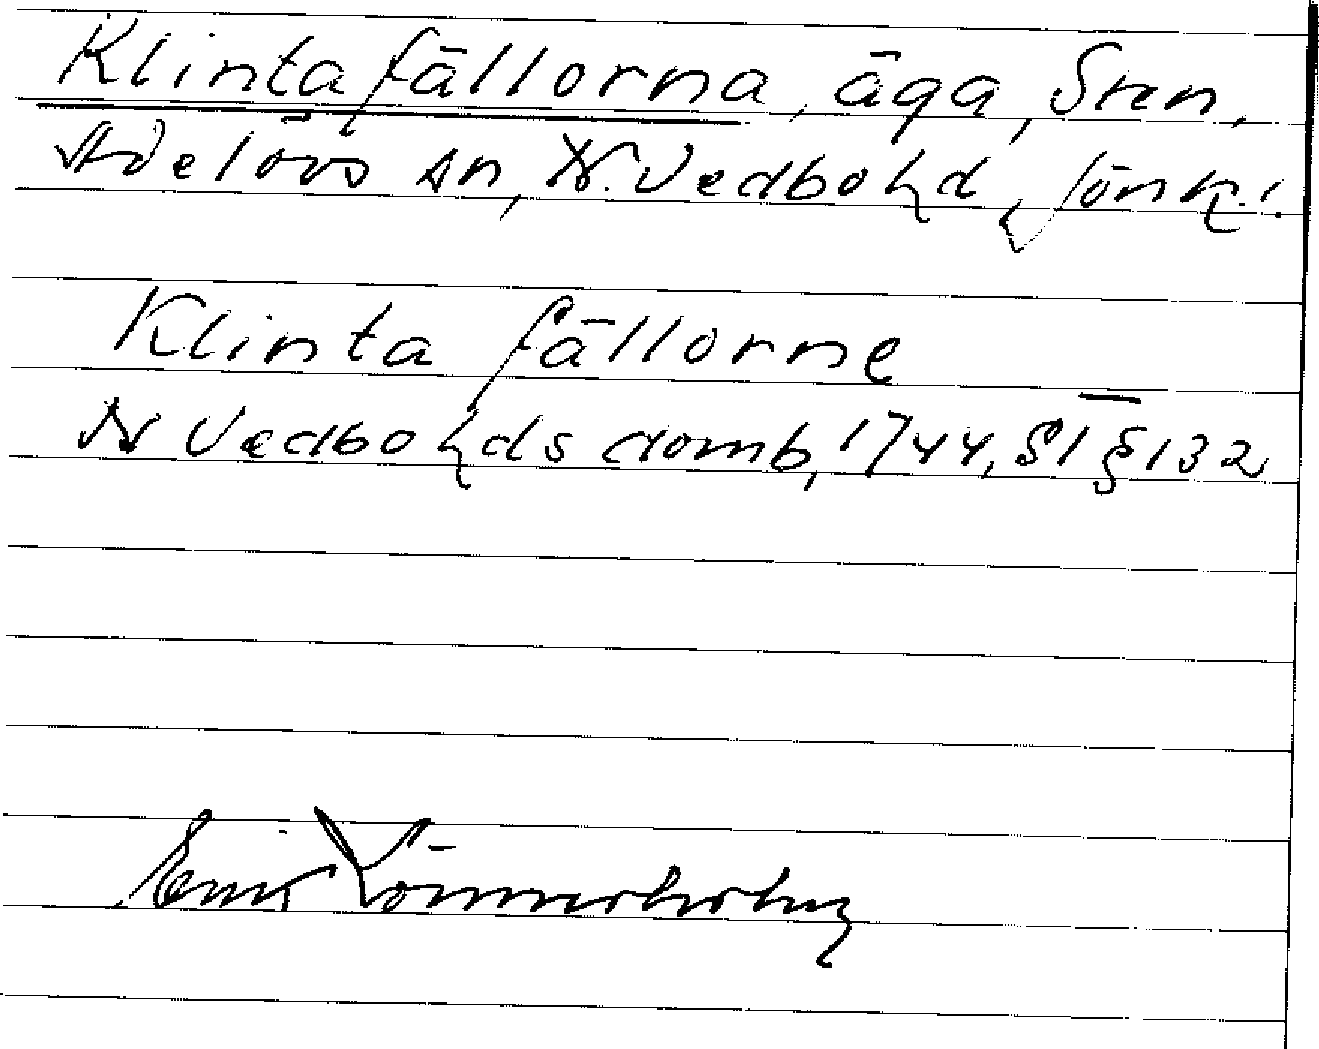 Klintafällorna, äga, Sten,
Adelövs sn, N. Vedbo hd, Jönk.l.
Klinta fällorne
N Vedbo hds domb, 1744, St § 132
Emil Lönnerholm